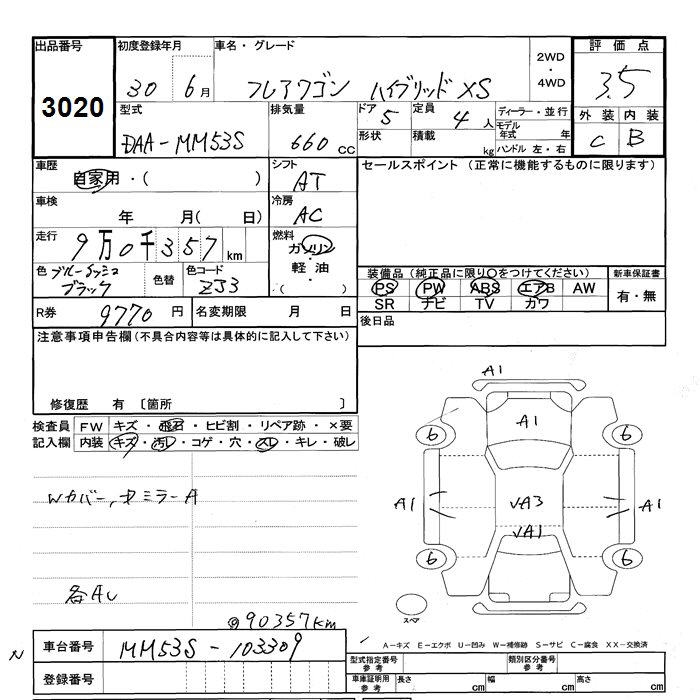 出品番号 初度登録年月 車名・グレード 2WD・4WD 評価点
3020 30 6月 フレアワゴン ハイブリッド XS 3.5
型式 排気量 ドア 5 定員 4人 ディーラー・並行 外装 内装
DAA-MM53S 660 CC 形状 積載 kg モデル年式 年 ハンドル 左・右 C B
車歴 自家用・( ) シフト AT セールスポイント (正常に機能するものに限ります)
車検 年 月( 日) 冷房 AC
走行 9万0千357km 燃料 ガソリン・軽油・( )
色 ブラック 色替 色コード ZJ3
装備品(純正品に限り○をつけてください) 新車保証書
PS PW ABS エアB AW 有・無
SR ナビ TV カワ
R券 9770円 名変期限 月 日 後日品
注意事項申告欄(不具合内容等は具体的に記入して下さい)
修復歴 有 〔箇所 〕
検査員記入欄 FW キズ・飛石・ヒビ割・リペア跡・×要
内装 キズ・汚レ・コゲ・穴・スレ・キレ・破レ
Wカバー,
ミラーA
A1
A1
6 6
A1 VA3 A1
VA1
6 6
スペア
@90357km
A-キズ E-エクボ U-凹み W-補修跡 S-サビ C-腐食 XX-交換済
N 車台番号 MM53S-103309
型式指定番号 参考 類別区分番号 参考
登録番号 車庫証明用 参考 長さ cm 幅 cm 高さ cm